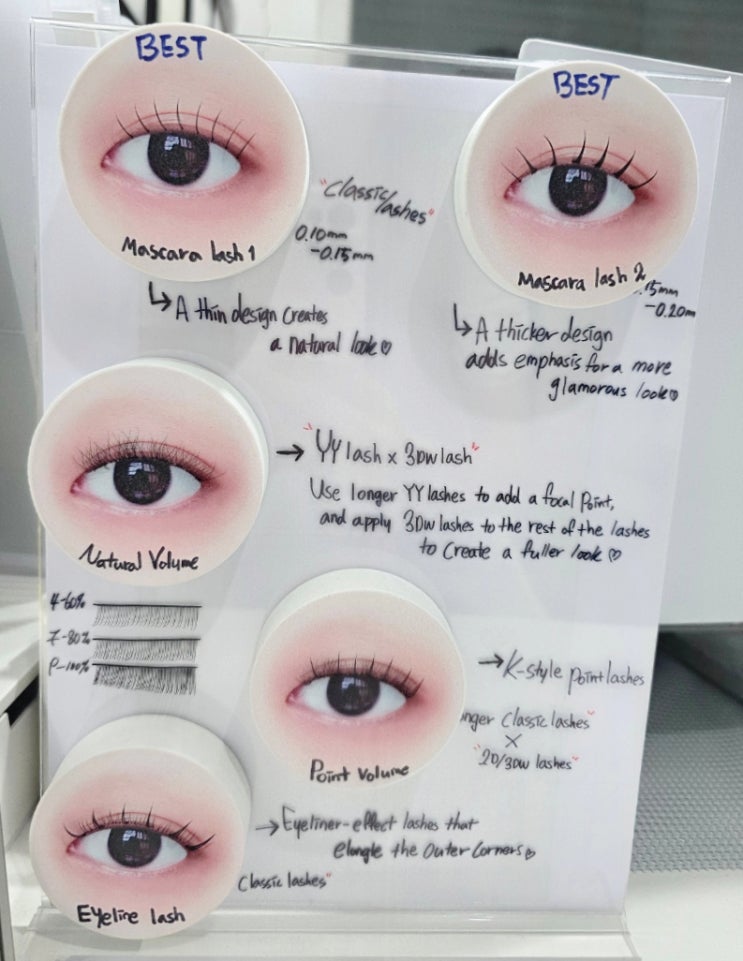 BEST
Mascara lash 1
"Classic lashes"
0.10mm
-0.15mm
↳ A thin design creates
a natural look♡
BEST
Mascara lash 2
.15mm
-0.20m
↳ A thicker design
adds emphasis for a more
glamorous look♡
Natural Volume
→ "YY lash x 3DW lash"
Use longer YY lashes to add a focal point,
and apply 3DW lashes to the rest of the lashes
to create a fuller look ♡
4-60%
7-80%
P-100%
Point Volume
→ K-style point lashes
nger Classic lashes"
X
"2D/3DW lashes"
Eyeline lash
→ Eyeliner-effect lashes that
elongle the outer corners♡
Classic lashes"